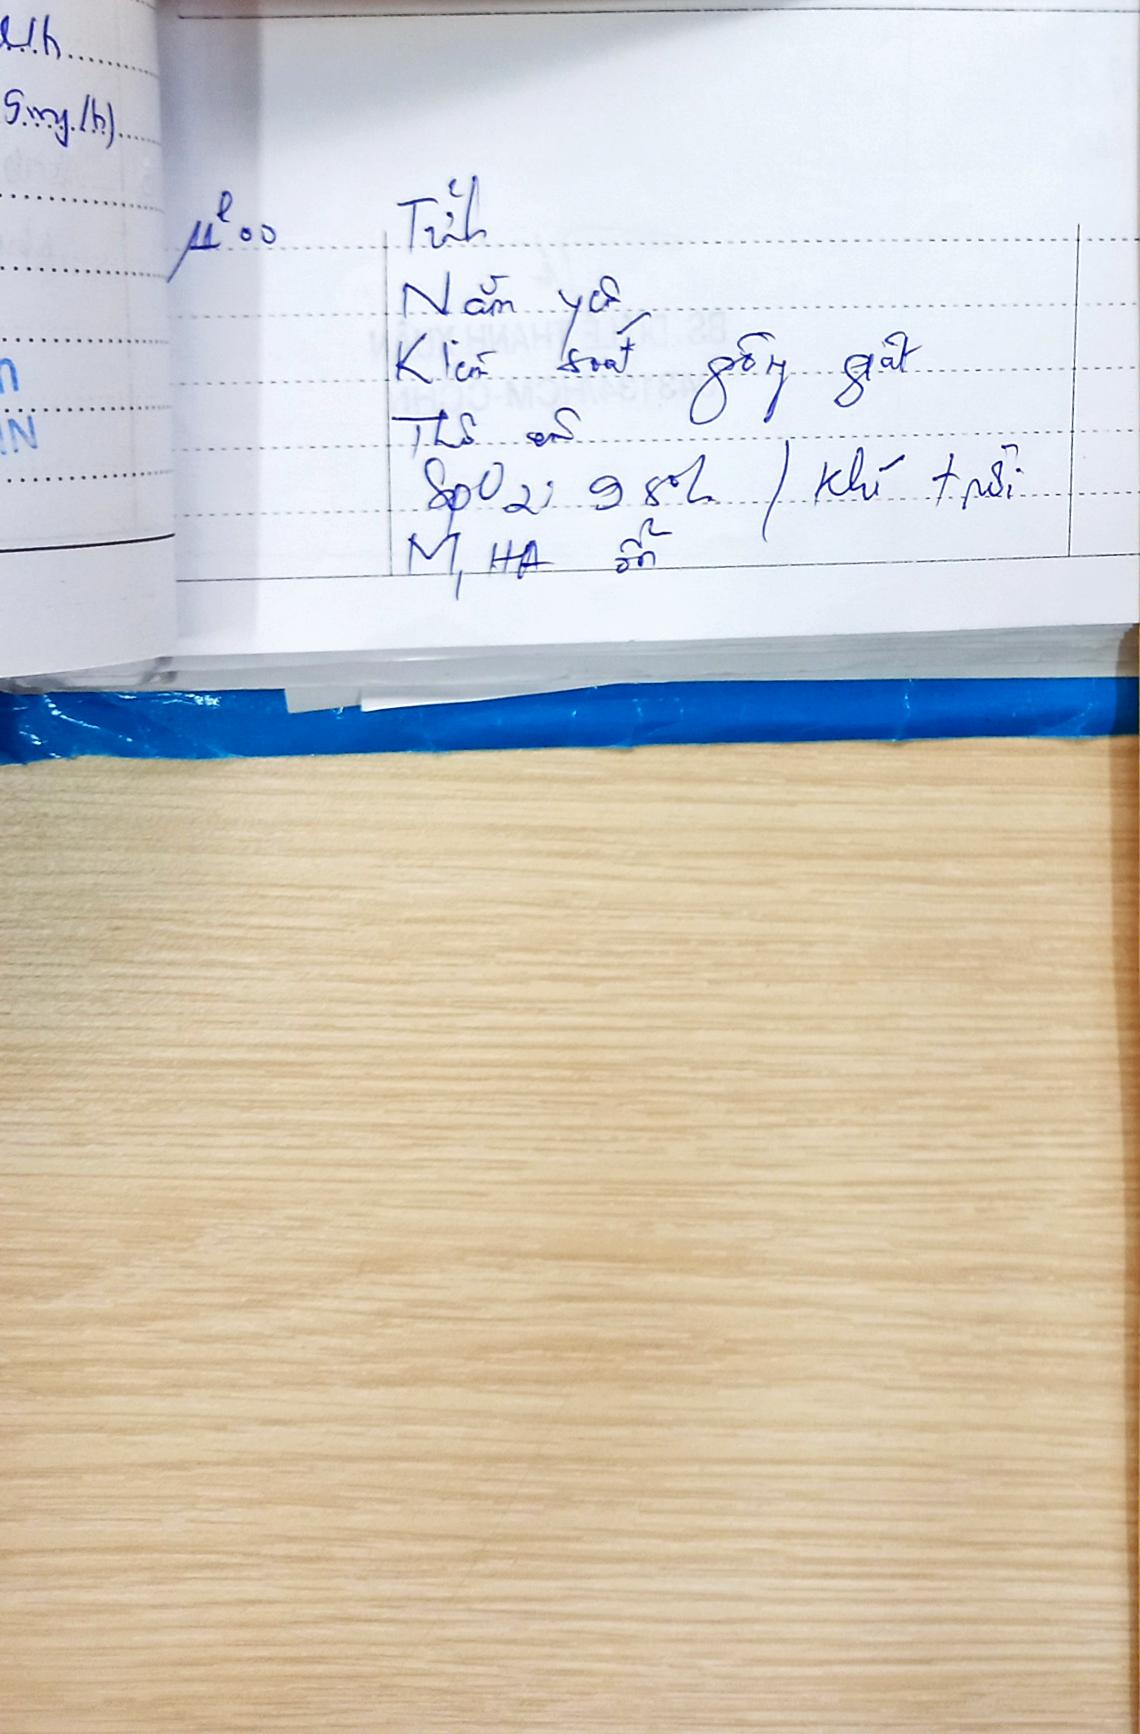 5mg/h)
11h00
Tỉnh
Nằm yên
Kiểm soát gồng giật
Thở êm
SpO2: 98% / khí trời
M, HA ổn